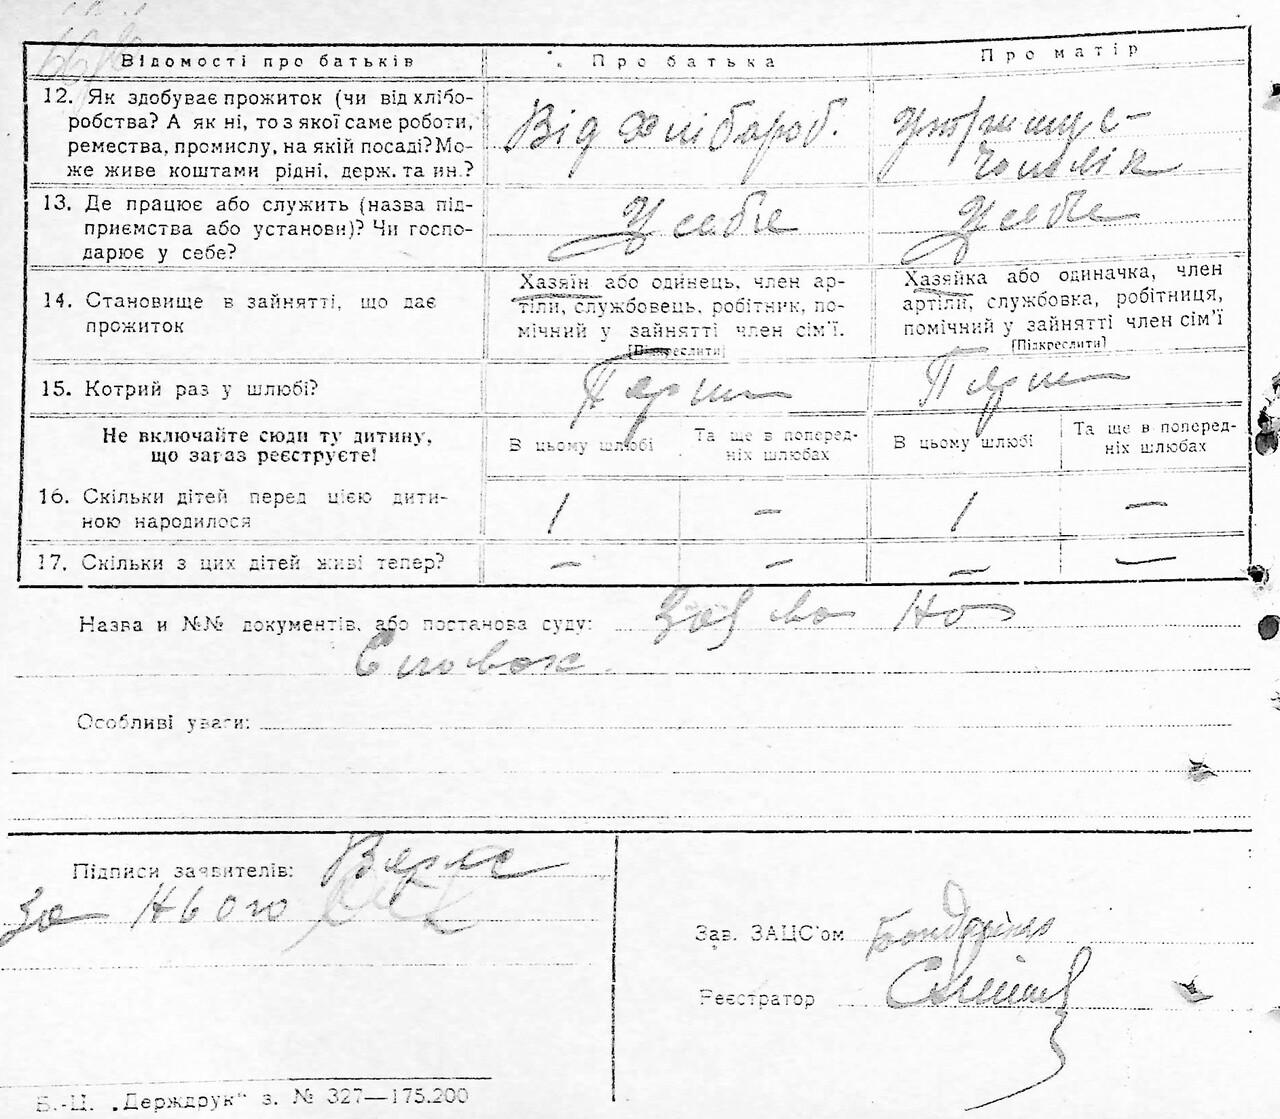 Відомості про батьків Про батька Про матір
12. Як здобуває прожиток (чи від хлібо-
робства? А як ні, то з якої саме роботи,
ремества, промислу, на якій посаді? Мо-
же живе коштами рідні, держ. та ин.?
Від хлібароб.
утримує-
чоловік
13. Де працює або служить (назва під-
приємства або установи)? Чи госпо-
дарює у себе?
У себе
У себе
14. Становище в зайнятті, що дає
прожиток
Хазяїн або одинець, член ар-
тіли, службовець, робітник, по-
мічний у зайнятті член сім'ї.
[Підкреслити]
Хазяйка або одиначка, член
артіли, службовка, робітниця,
помічний у зайнятті член сім'ї
[Підкреслити]
15. Котрий раз у шлюбі?
Перш
Перш
Не включайте сюди ту дитину,
що зараз реєструєте!
В цьому шлюбі
Та ще в поперед-
ніх шлюбах
В цьому шлюбі
Та ще в поперед-
ніх шлюбах
16. Скільки дітей перед цією дити-
ною народилося
1 — 1 —
17. Скільки з цих дітей живі тепер?
— — — —
Назва и №№ документів, або постанова суду:
Особливі уваги:
Підписи заявителів:
за нього
Зав. ЗАЦС'ом
Реєстратор
Б.-Ц. „Держдрук" з. № 327—175.200